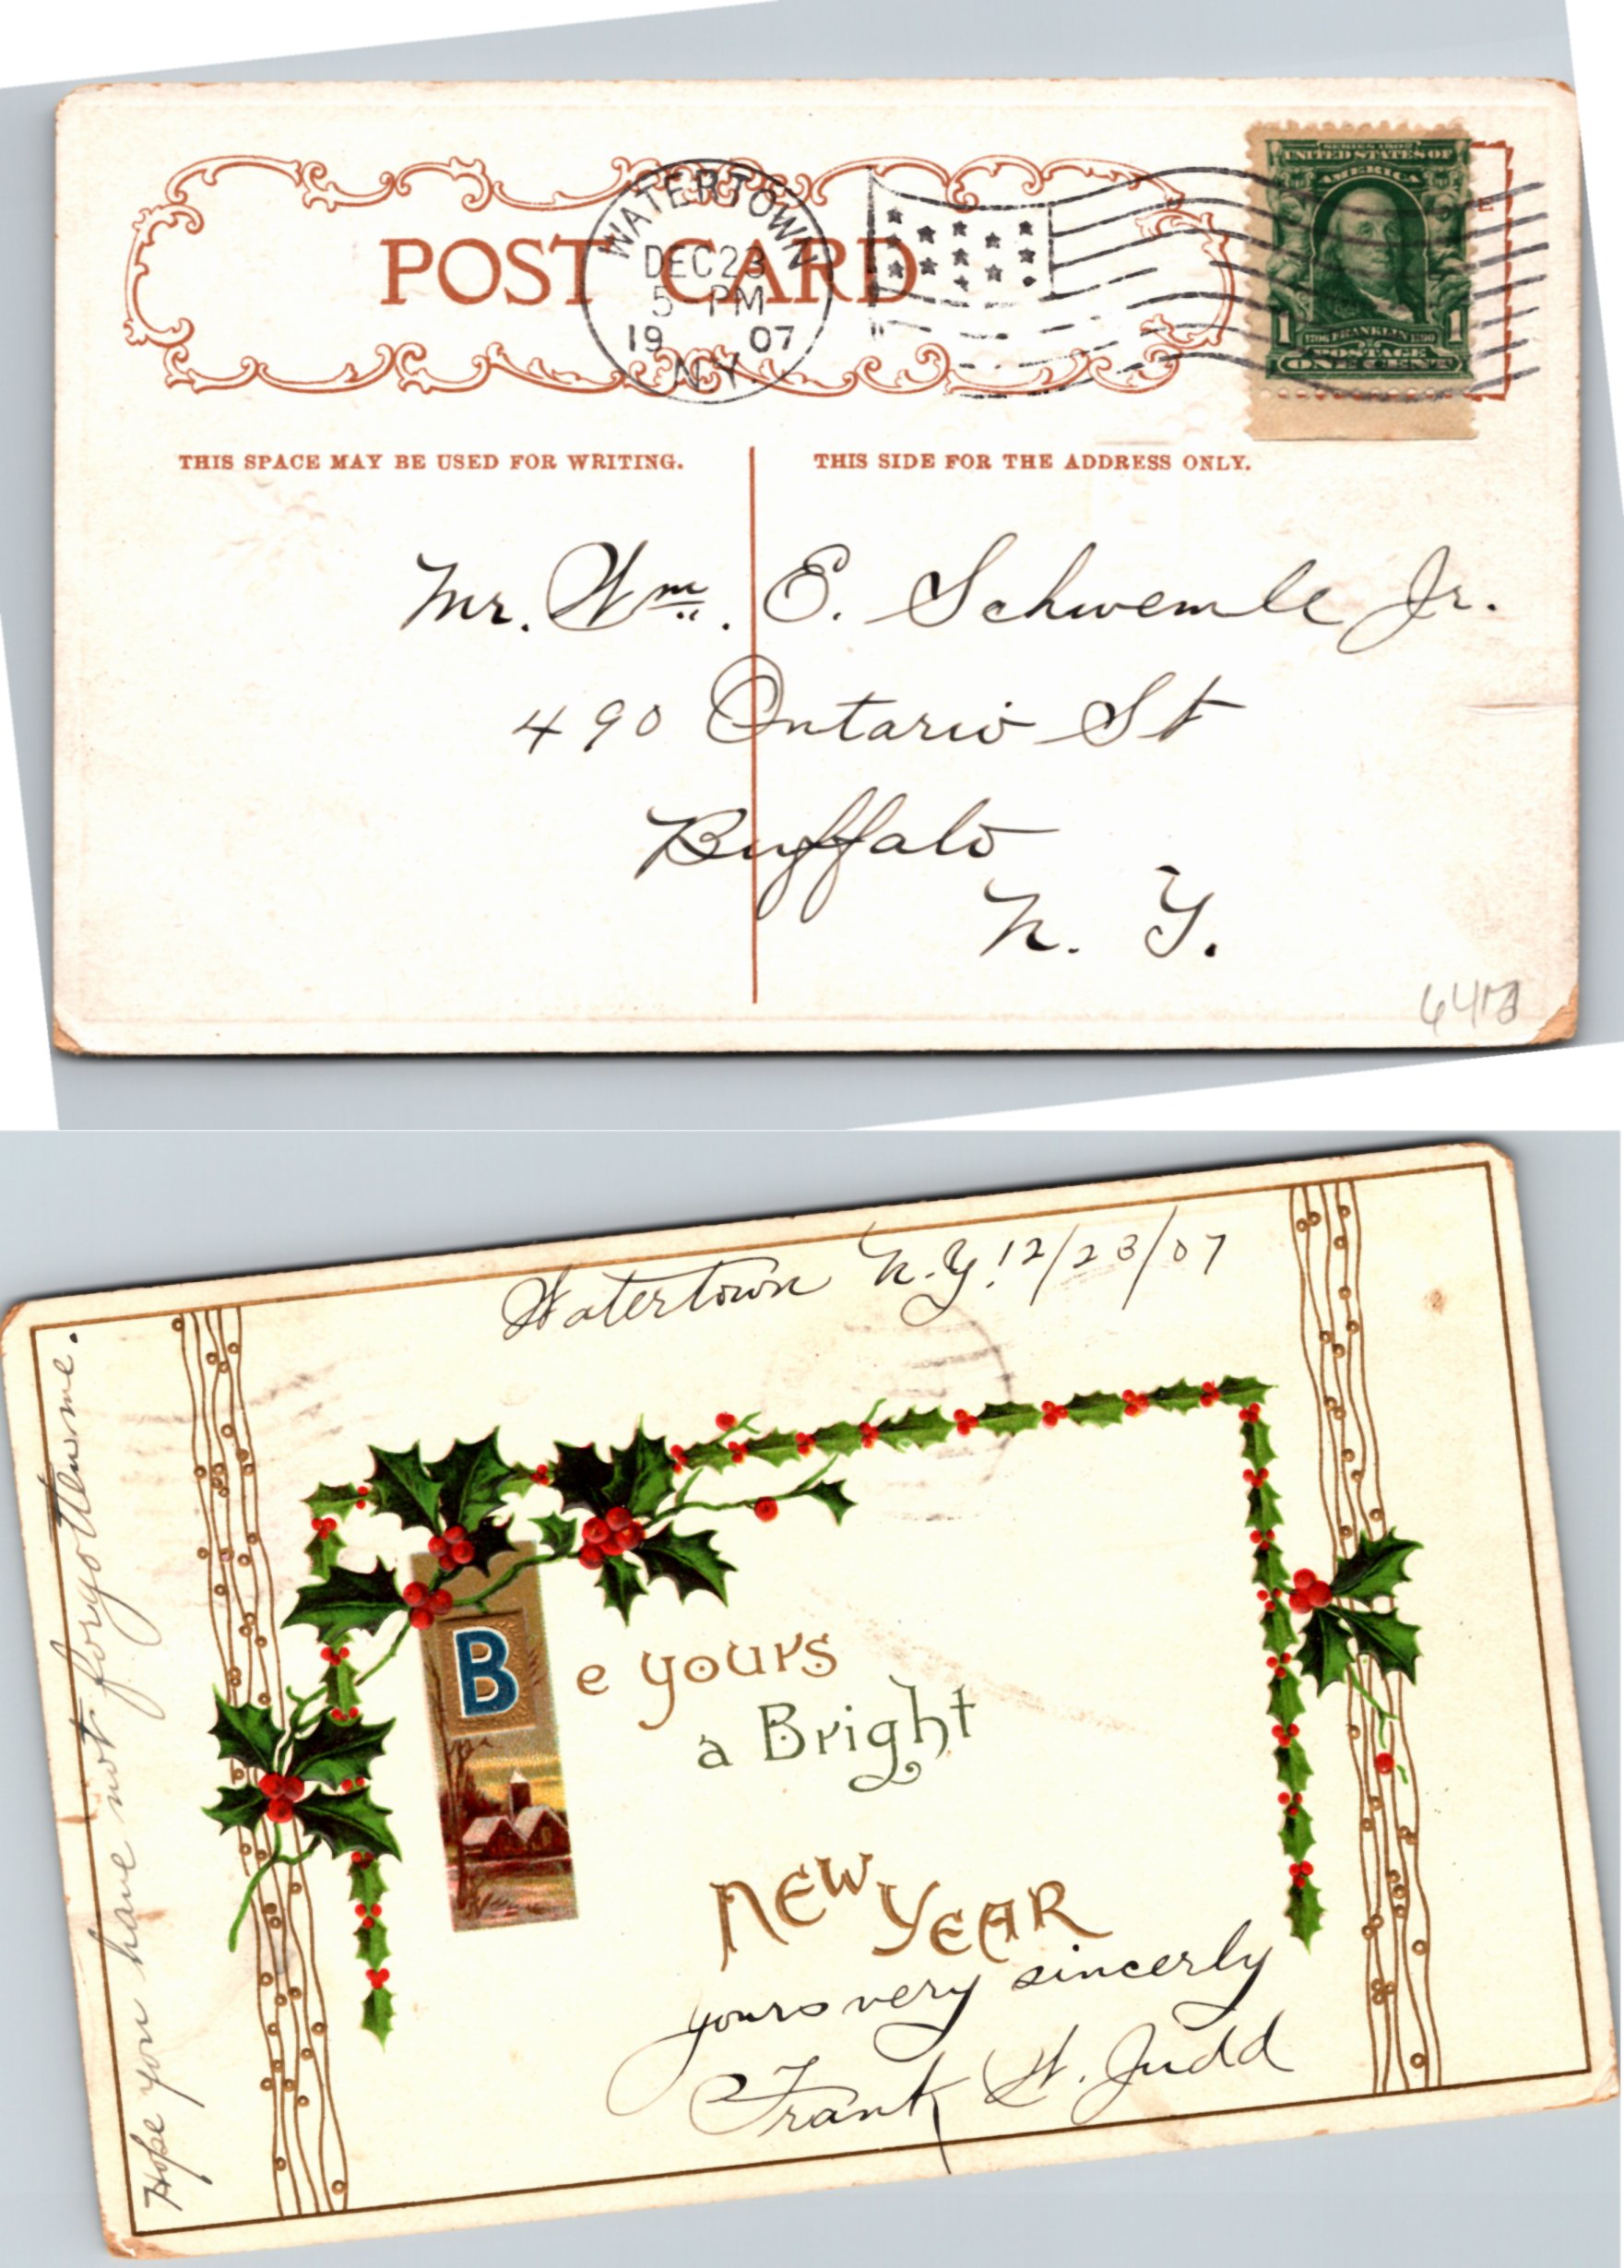 POST CARD
WATERTOWN
DEC 23
5-PM
19 07
N.Y.
SERIES 1902
UNITED STATES OF
AMERICA
1 1706 FRANKLIN 1790 1
POSTAGE
ONE CENT
THIS SPACE MAY BE USED FOR WRITING.
THIS SIDE FOR THE ADDRESS ONLY.
Mr. Wm. E. Schwemle Jr.
490 Ontario St
Buffalo
N. Y.
Watertown N.Y. 12/23/07
Hope you have not forgotten me.
Be yours
a Bright
NEW YEAR
yours very sincerly
Frank W. Judd